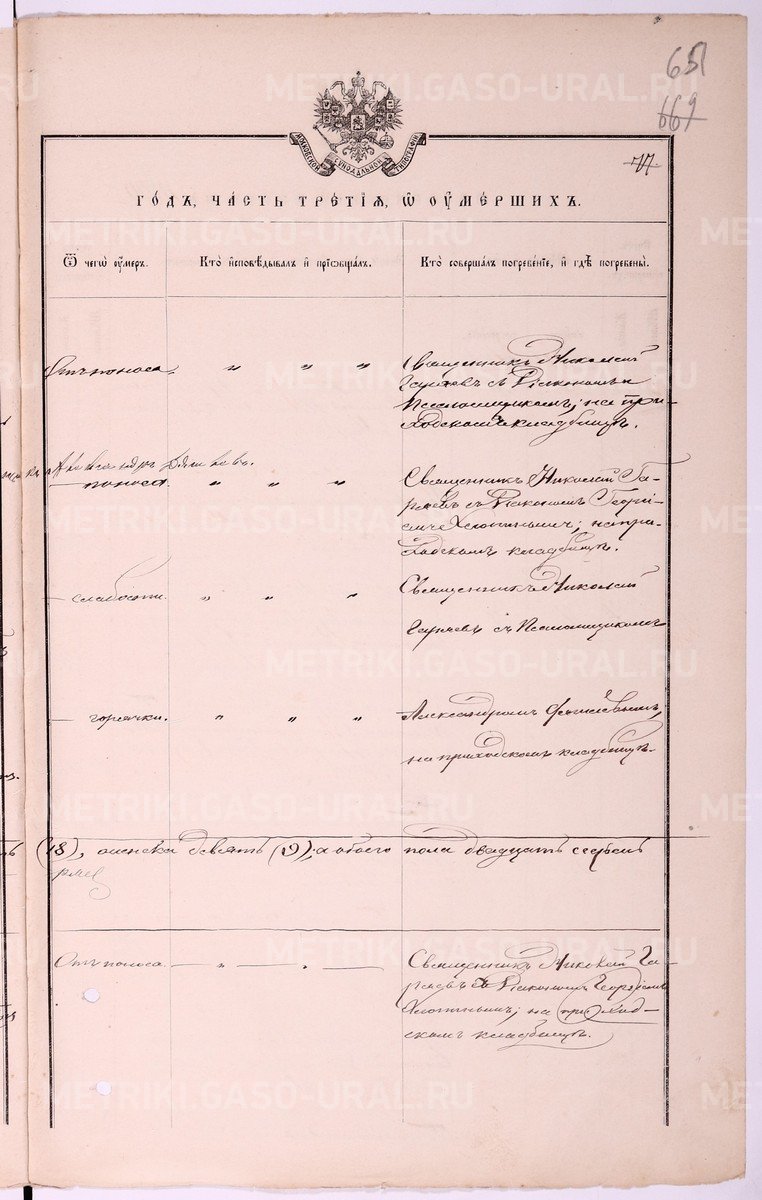 651
669
77
МОСКОВСКОЙ СУНОДАЛЬНОЙ ТИПОГРАФІИ
ГО́ДЪ, ЧА́СТЬ ТРЕ́ТІѦ, Ѿ ОУМЕ́РШИХЪ.
Ѿ чегѡ̀ оу҆́меръ.
Кто̀ и҆сповѣ́дывалъ и҆ прїѡбща́лъ.
Кто̀ соверша́лъ погребе́нїе, и҆ гдѣ̀ погребены̀.
Отъ поноса. " " " Священникъ Николай
Гаряевъ съ Діакономъ и
Псаломщикомъ; на при-
ходскомъ кладбищѣ.
Александръ
— поноса. " " " Священникъ Николай Га-
ряевъ съ Діакономъ Георгі-
емъ Хлопинымъ; на при-
ходскомъ кладбищѣ.
— слабости. " " " Священникъ Николай
Гаряевъ съ Псаломщикомъ
— горячки. " " " Александромъ
на приходскомъ кладбищѣ.
(18), женска девять (9), а обоего пола двадцать семь
Отъ поноса. — " — " — Священникъ Николай Га-
ряевъ съ Діакономъ Георгіемъ
Хлопинымъ; на приход-
скомъ кладбищѣ.
METRIKI.GASO-URAL.RU